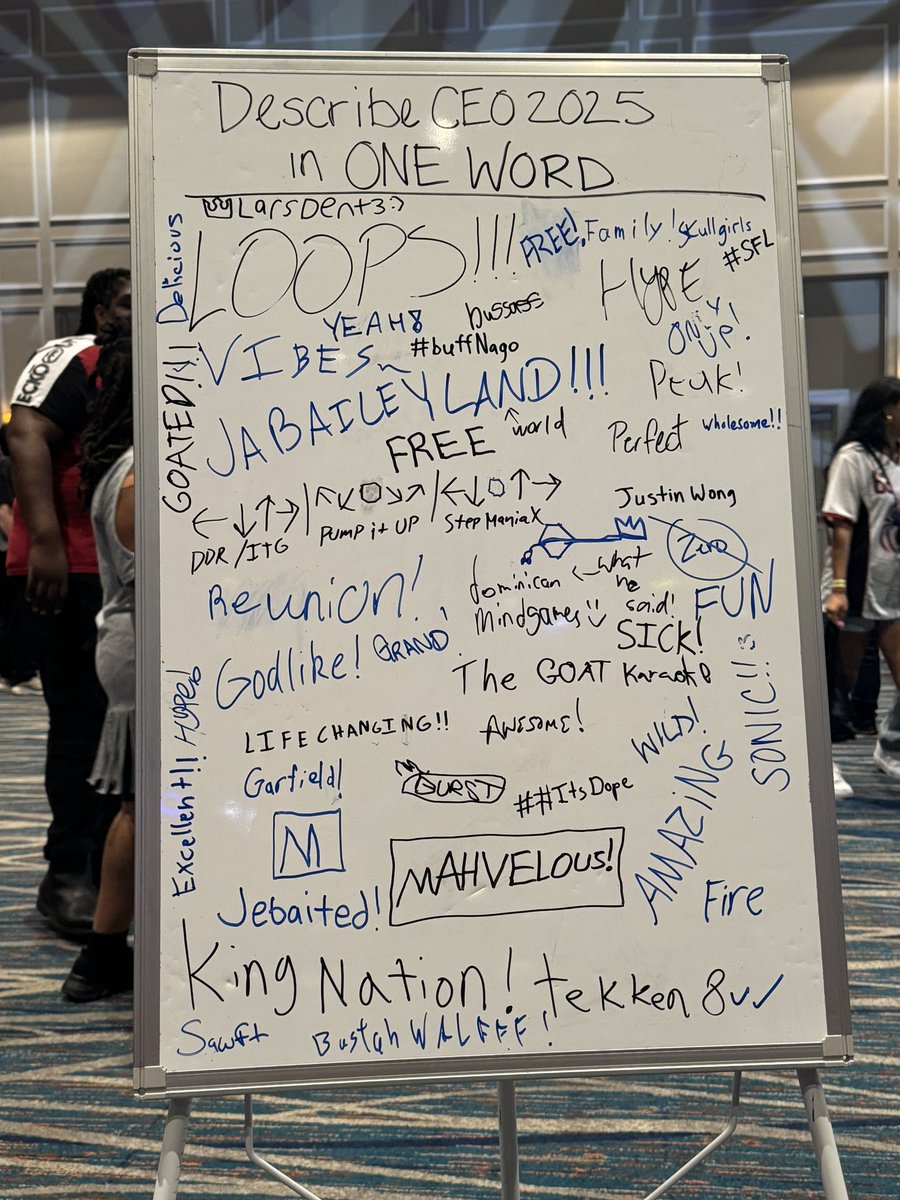 Describe CEO 2025
in ONE WORD
LarsDent3:)
Delicious
LOOPS!!!
FREE!
Family!
Skullgirls
#SFL
HYPE
YEAH
bussass
VIBES
#buffNago
ONLY
UP!
GOATED!!!
JABAILEYLAND!!!
Peak!
FREE
world
Perfect
wholesome!!
DDR/ITG
PUMP it UP
Step ManiaX
Justin Wong
Zero
Reunion!
dominican
mindgames
what
he
said!
FUN
SICK!
Godlike!
GRAND!
The GOAT
Karaoke
SONIC!!
LIFE CHANGING!!
AWESOME!
WILD!
Excellent!!
Garfield!
GURST
##ItsDope
AMAZING
M
MAHVELOUS!
Jebaited!
Fire
King Nation!
Tekken 8
Sawft
Bustah WALFFF!
ECKO